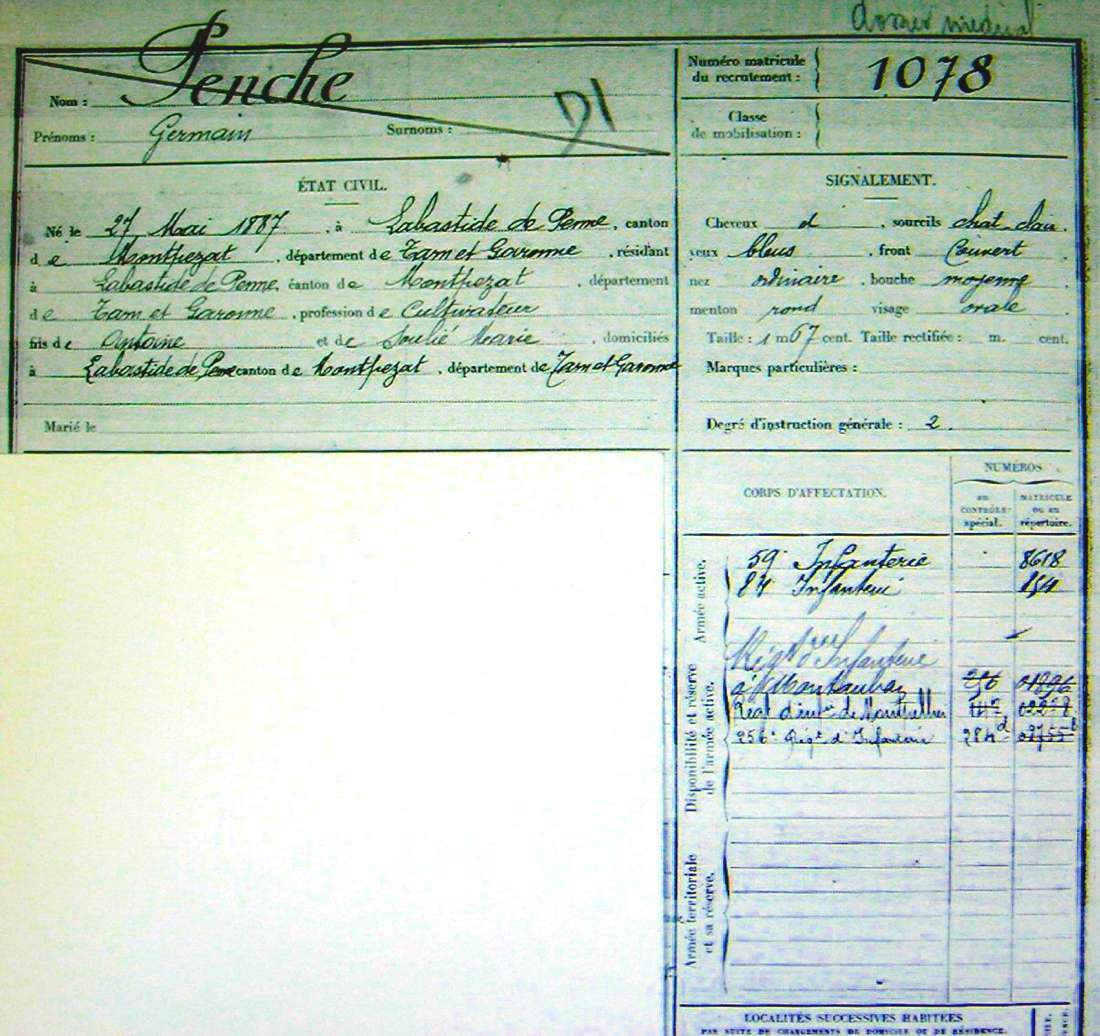 dossier médical
Penche
Nom :
Prénoms : Germain Surnoms :
Numéro matricule
du recrutement : 1078
Classe
de mobilisation :
ÉTAT CIVIL.
Né le 27 Mai 1887, à Labastide de Penne, canton
de Montpezat, département de Tarn et Garonne, résidant
à Labastide de Penne, canton de Montpezat, département
de Tarn et Garonne, profession de Cultivateur
fils de Antoine et de Soulié Marie, domiciliés
à Labastide de Penne canton de Montpezat, département de Tarn et Garonne
Marié le
SIGNALEMENT.
Cheveux d, sourcils chat. clair.
yeux bleus, front Couvert
nez ordinaire, bouche moyenne
menton rond visage ovale
Taille : 1 m 67 cent. Taille rectifiée : m. cent.
Marques particulières :
Degré d'instruction générale : 2.
CORPS D'AFFECTATION.
NUMÉROS
au
CONTRÔLE
spécial.
MATRICULE
ou au
répertoire.
Armée active.
59 Infanterie 8618
84 Infanterie
Disponibilité et réserve
de l'armée active.
Régt d'Infanterie
à Montauban 256 01896
Régt d'infie de Montpellier
256e Régt d'Infanterie 284d
Armée territoriale
et sa réserve.
LOCALITÉS SUCCESSIVES HABITÉES
PAR SUITE DE CHANGEMENTS DE DOMICILE OU DE RÉSIDENCE.